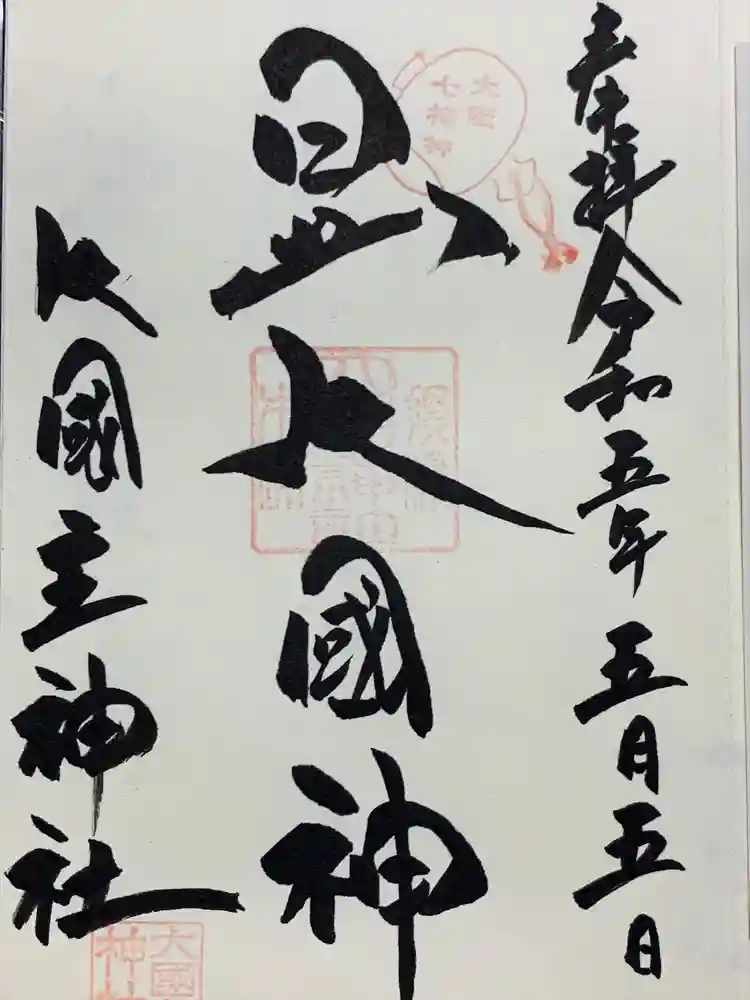 奉拝 令和五年 五月五日
大阪
七福神
大國神
大國主神社
大國